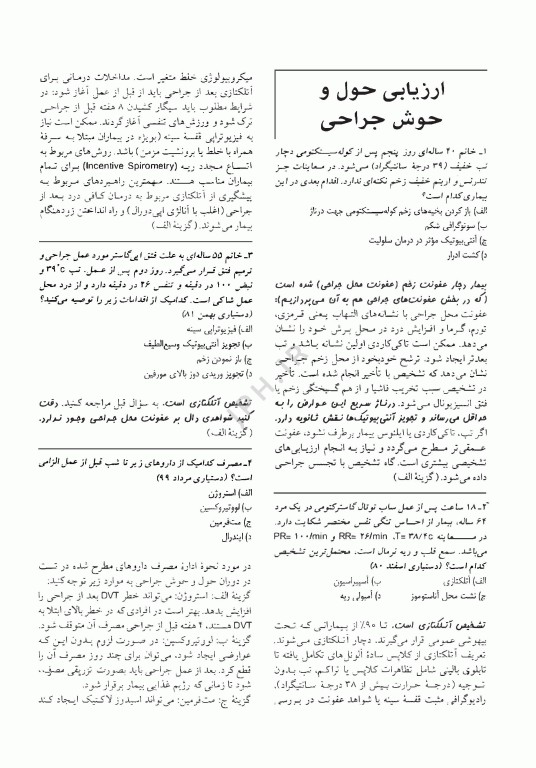 ارزیابی حول و
حوش جراحی
۱ـ خانم ۴۰ ساله‌ای روز پنجم پس از کوله‌سیستکتومی دچار
تب خفیف (۳۹ درجهٔ سانتیگراد) می‌شود. در معاینات جز
تندرنس و اریتم خفیف زخم نکته‌ای ندارد. اقدام بعدی در این
بیماری کدام است؟
الف) باز کردن بخیه‌های زخم کوله‌سیستکتومی جهت درناژ
ب) سونوگرافی شکم
ج) آنتی‌بیوتیک مؤثر در درمان سلولیت
د) کشت ادرار
بیمار دچار عفونت زخم (عفونت محل جراحی) شده است
(که در بخش عفونت‌های جراحی هم به آن می‌پردازیم):
عفونت محل جراحی با نشانه‌های التهاب یعنی قرمزی،
تورم، گرما و افزایش درد در محل برش خود را نشان
می‌دهد. ممکن است تاکی‌کاردی اولین نشانه باشد و تب
بعدتر ایجاد شود. ترشح خودبخود از محل زخم جراحی
نشان می‌دهد که تشخیص با تأخیر انجام شده است. تأخیر
در تشخیص سبب تخریب فاشیا و از هم گسیختگی زخم یا
فتق انسیزیونال می‌شود. درناژ سریع این عوارض را به
حداقل می‌رساند و تجویز آنتی‌بیوتیک‌ها نقش ثانویه دارد.
اگر تب، تاکی‌کاردی یا ایلئوس بیمار برطرف نشود، عفونت
عمقی‌تر مطرح می‌گردد و نیاز به انجام ارزیابی‌های
تشخیصی بیشتری است. گاه تشخیص با تجسس جراحی
داده می‌شود. (گزینهٔ الف)
۲ـ ۱۸ ساعت پس از عمل ساب توتال گاسترکتومی در یک مرد
۶۴ ساله، بیمار از احساس تنگی نفس مختصر شکایت دارد.
در معاینه T= ۳۸/۴c، RR= ۲۶/min و PR= ۱۰۰/min
می‌باشد. سمع قلب و ریه نرمال است. محتمل‌ترین تشخیص
کدام است؟ (دستیاری اسفند ۸۰)
الف) آتلکتازی ب) آسپیراسیون
ج) نشت محل آناستوموز د) آمبولی ریه
تشخیص آتلکتازی است. تا ۹۰٪ از بیمارانی که تحت
بیهوشی عمومی قرار می‌گیرند، دچار آتلکتازی می‌شوند.
تعریف آتلکتازی از کلاپس سادهٔ آلوئل‌های تکامل یافته تا
تابلوی بالینی شامل تظاهرات کلاپس یا تراکم، تب بدون
توجیه (درجهٔ حرارت بیش از ۳۸ درجهٔ سانتیگراد)،
رادیوگرافی مثبت قفسهٔ سینه یا شواهد عفونت در بررسی
میکروبیولوژی خلط متغیر است. مداخلات درمانی برای
آتلکتازی بعد از جراحی باید از قبل از عمل آغاز شود: در
شرایط مطلوب باید سیگار کشیدن ۸ هفته قبل از جراحی
ترک شود و ورزش‌های تنفسی آغاز گردند. ممکن است نیاز
به فیزیوتراپی قفسهٔ سینه (بویژه در بیماران مبتلا به سرفهٔ
همراه با خلط یا برونشیت مزمن) باشد. روش‌های مربوط به
اتساع مجدد ریه (Incentive Spirometry) برای تمام
بیماران مناسب هستند. مهمترین راهبردهای مربوط به
پیشگیری از آتلکتازی مربوط به درمان کافی درد بعد از
جراحی (اغلب با آنالژی اپی‌دورال) و راه انداختن زودهنگام
بیمار می‌شوند. (گزینهٔ الف)
۳ـ خانم ۵۵ ساله‌ای به علت فتق اپی‌گاستر مورد عمل جراحی و
ترمیم فتق قرار می‌گیرد. روز دوم پس از عمل، تب ۳۹°c و
نبض ۱۰۰ در دقیقه و تنفس ۲۶ در دقیقه دارد و از درد محل
عمل شاکی است. کدامیک از اقدامات زیر را توصیه می‌کنید؟
(دستیاری بهمن ۸۱)
الف) فیزیوتراپی سینه
ب) تجویز آنتی‌بیوتیک وسیع‌الطیف
ج) باز نمودن زخم
د) تجویز وریدی دوز بالای مورفین
تشخیص آتلکتازی است. به سؤال قبل مراجعه کنید. دقت
کنید شواهدی دال بر عفونت محل جراحی وجود ندارد.
(گزینهٔ الف)
۴ـ مصرف کدامیک از داروهای زیر تا شب قبل از عمل الزامی
است؟ (دستیاری مرداد ۹۹)
الف) استروژن
ب) لووتیروکسین
ج) مت‌فرمین
د) ایندرال
در مورد نحوهٔ ادارهٔ مصرف داروهای مطرح شده در تست
در دوران حول و حوش جراحی به موارد زیر توجه کنید:
گزینهٔ الف: استروژن: می‌تواند خطر DVT بعد از جراحی را
افزایش بدهد. بهتر است در افرادی که در خطر بالای ابتلا به
DVT هستند، ۴ هفته قبل از جراحی مصرف آن متوقف شود.
گزینهٔ ب: لووتیروکسین: در صورت لزوم بدون این که
عوارضی ایجاد شود، می‌توان برای چند روز مصرف آن را
قطع کرد. بعد از عمل جراحی باید بصورت تزریقی مصرف
شود تا زمانی که رژیم غذایی بیمار برقرار شود.
گزینهٔ ج: مت‌فرمین: می‌تواند اسیدوز لاکتیک ایجاد کند